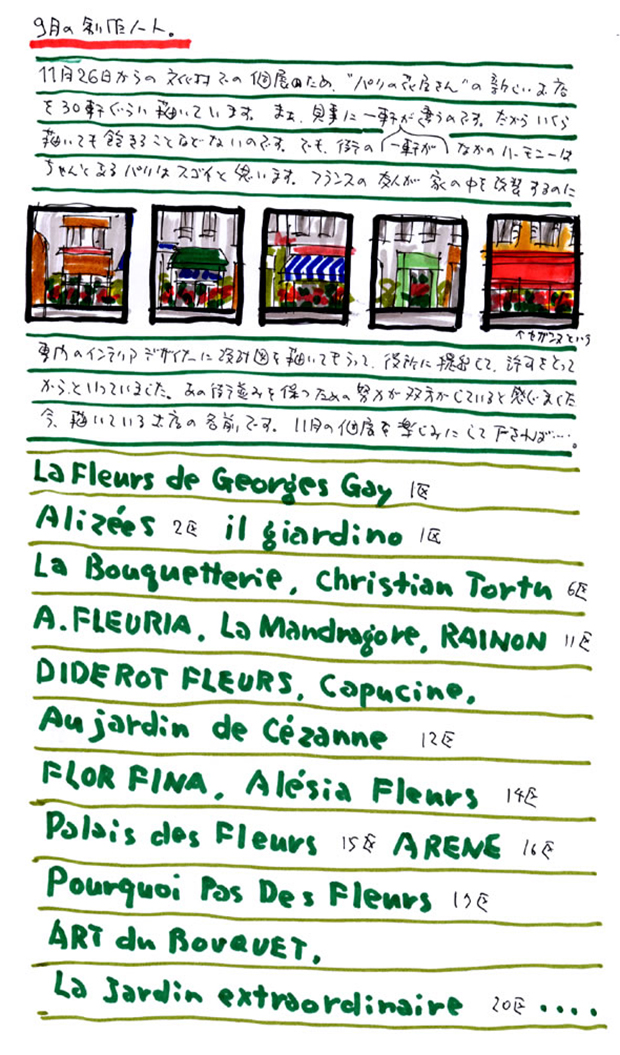 9月の創作ノート。
11月26日からの での個展のため、"パリの花屋さん"の新しいお店
を30軒ぐらい描いています。また、見事に一軒が違うのです。だからいくら
描いても飽きることなどないのです。でも、街の(一軒が)なかのハーモニーは
ちゃんとあるパリはスゴイと思います。フランスの友人が家の中を改装するのに
↑セザンヌという
専門のインテリアデザイナーに設計図を描いてもらって、役所に提出して、許可をとって
からといっていました。あの街並みを保つための努力が双方がしていると感じました
今、描いているお店の名前です。11月の個展を楽しみにして下されば…。
La Fleurs de Georges Gay 1区
Alizées 2区 il giardino 1区
La Bouquetterie, Christian Tortu 6区
A.FLEURIA, La Mandragore, RAINON 11区
DIDEROT FLEURS, Capucine,
Au jardin de Cézanne 12区
FLOR FINA, Alésia Fleurs 14区
Palais des Fleurs 15区 ARENE 16区
Pourquoi Pas Des Fleurs 17区
ART du BOUQUET,
La Jardin extraordinaire 20区 ....